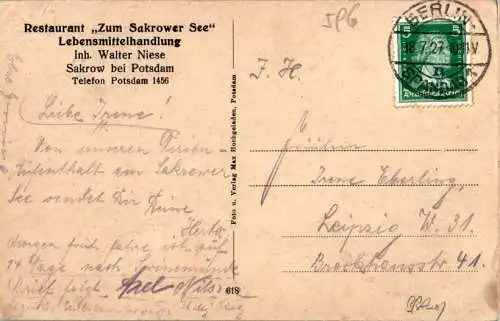 Restaurant „Zum Sakrower See"
Lebensmittelhandlung
Inh. Walter Niese
Sakrow bei Potsdam
Telefon Potsdam 1456
Liebe Irene!
Von unserem Ferien-
Aufenthalt am Sakrower
See sendet Dir Deine
Herta
Morgen früh fahre ich auf
14 Tage nach Swinemünde
Brief folgt.
Foto u. Verlag Max Hochgeladen, Potsdam
618
596
BERLIN
18.7.27
Deutsches Reich
F. H.
Fräulein
Irene Eberling
Leipzig W. 31.
Brockhausstraße 41.